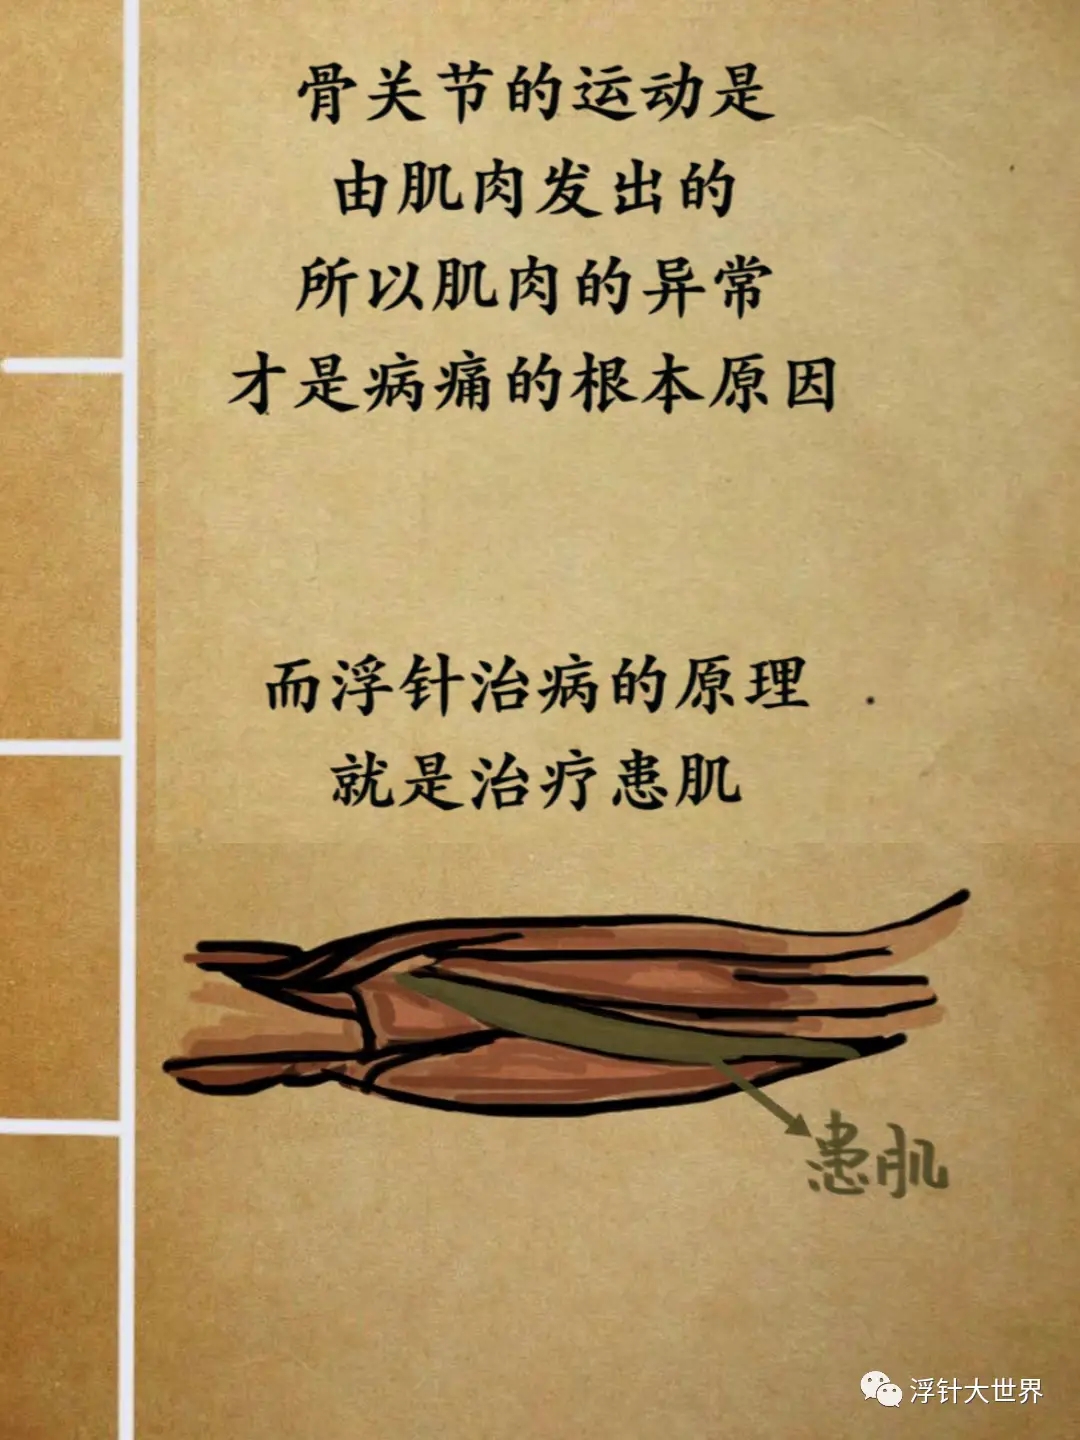 骨关节的运动是
由肌肉发出的
所以肌肉的异常
才是病痛的根本原因
而浮针治病的原理
就是治疗患肌
患肌
浮针大世界